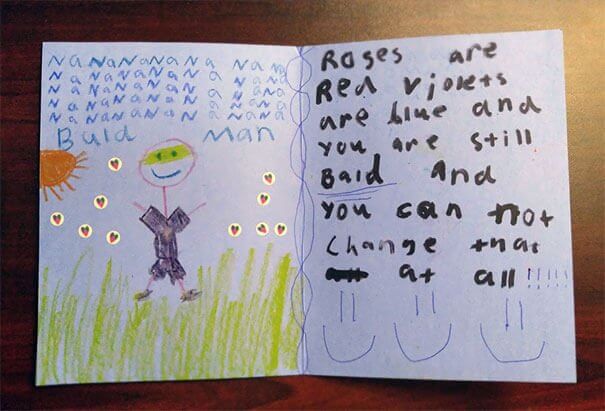 NaNaNaNaNa NaNa
NaNaNaNaNa NaNa
NaNaNaNaNa NaNa
NaNaNaNaNa NaNa
NaNaNaNaNa NaNa
Bald Man
Roses are
Red violets
are blue and
you are still
Bald And
you can not
change that
at all!!!!!